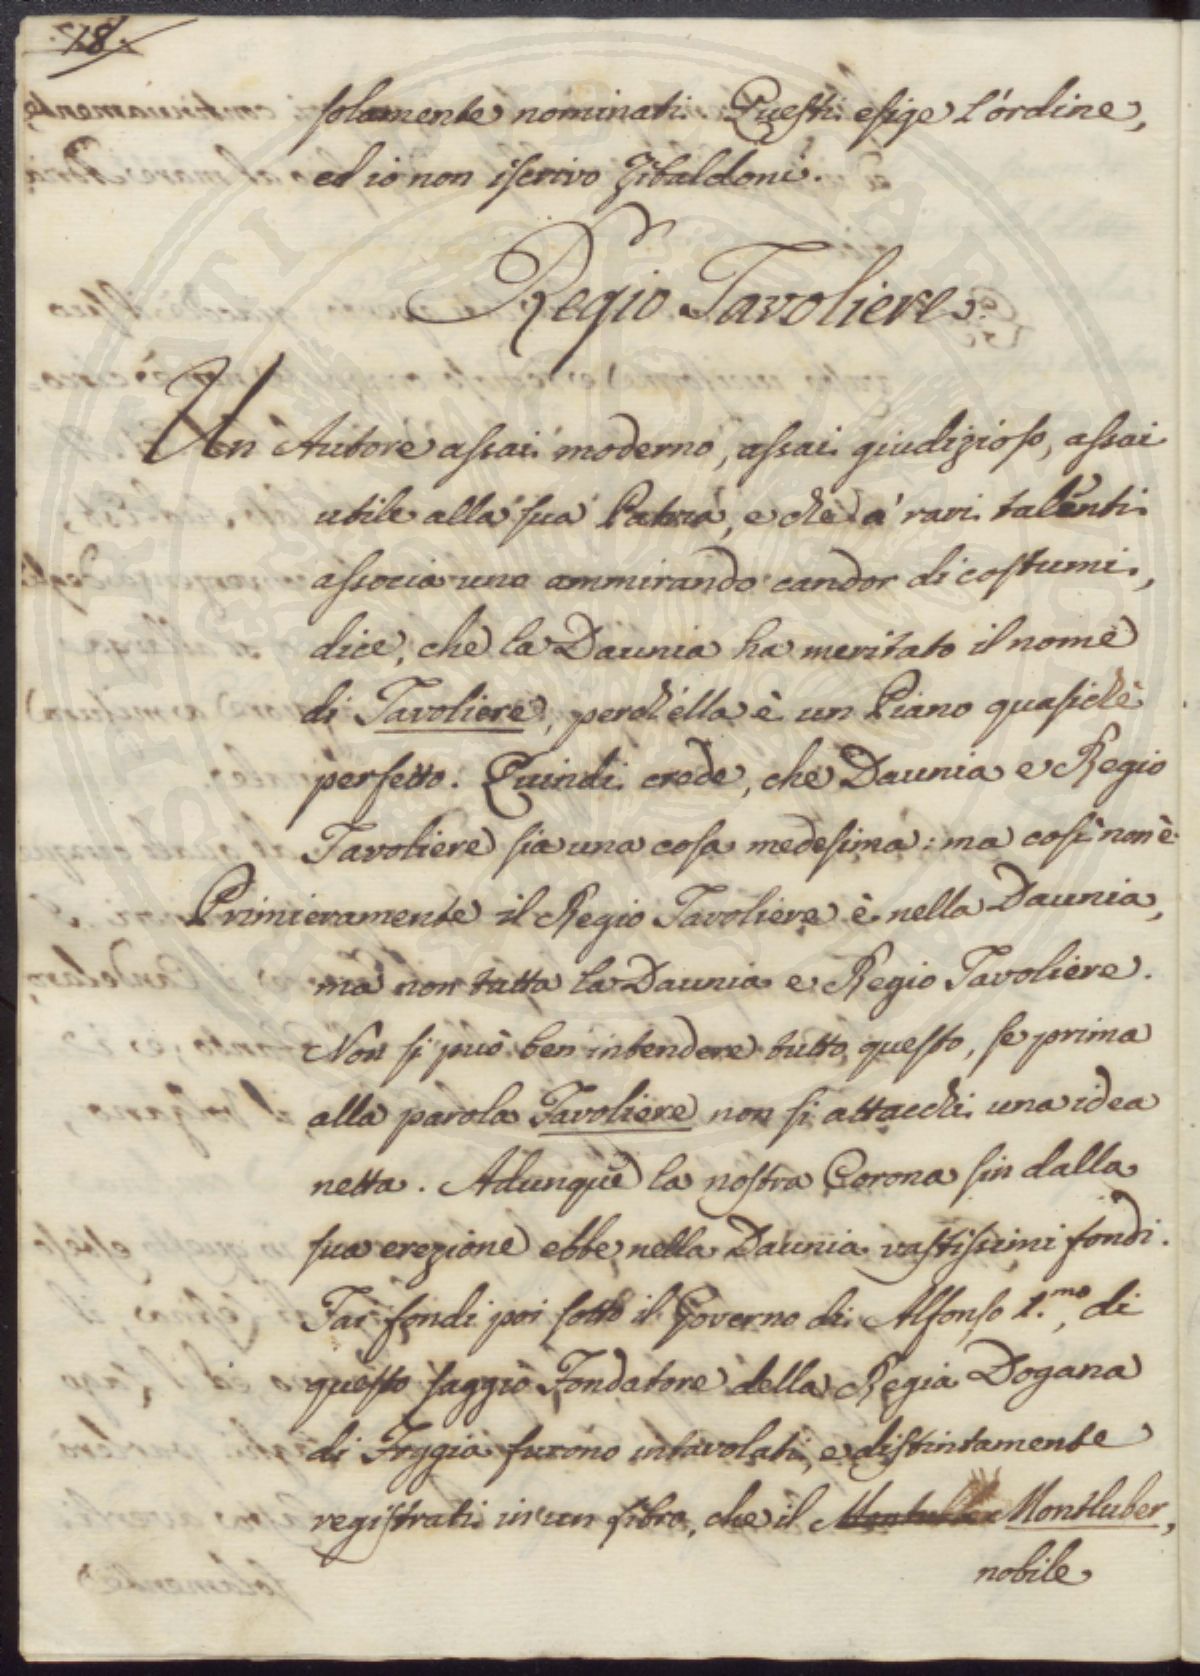 78.
solamente nominati. Questi esige l'ordine,
ed io non iscrivo Zibaldoni.
Regio Tavoliere.
Un Autore assai moderno, assai giudizioso, assai
utile alla sua Patria, e che a' rari talenti
associa una ammirando candor di costumi,
dice, che la Daunia ha meritato il nome
di Tavoliere, perch'ella è un Piano quasichè
perfetto. Quindi crede, che Daunia e Regio
Tavoliere sia una cosa medesima: ma così non è.
Primieramente il Regio Tavoliere è nella Daunia,
ma non tutta la Daunia e Regio Tavoliere.
Non si può ben intendere tutto questo, se prima
alla parola Tavoliere non si attacchi una idea
netta. Adunque la nostra Corona sin dalla
sua erezione ebbe nella Daunia vastissimi fondi.
Tai fondi poi sotto il Governo di Alfonso 1.mo, di
questo saggio Fondatore della Regia Dogana
di Foggia furono intavolati, e distintamente
registrati in un libro, che il Montluber,
nobile